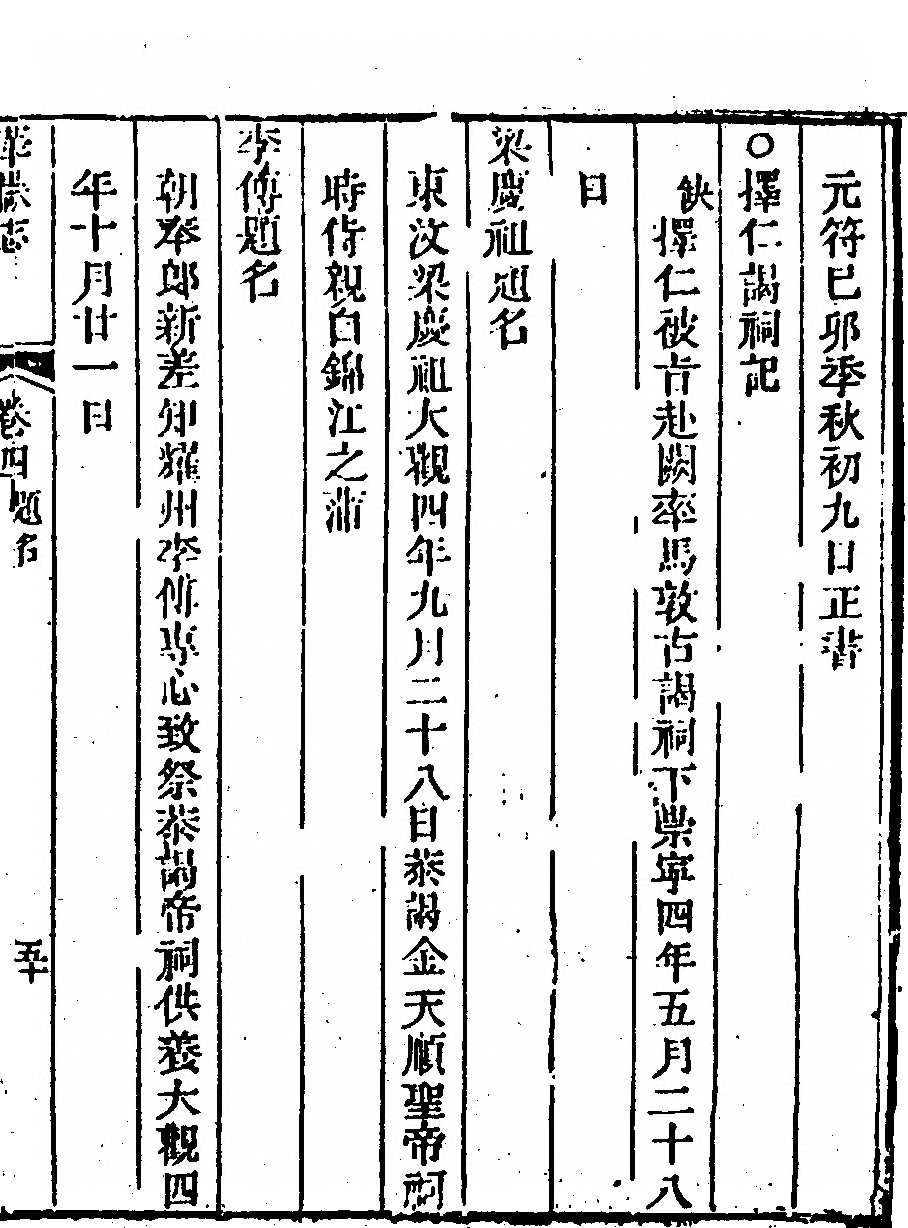 元符巳夘季秋初九日正書
○擇仁謁祠記
缺擇仁被㫖赴闕率馬敦古謁祠下崇寧四年五月二十八
日
梁慶祖題名
東汶梁慶祖大觀四年九月二十八日恭謁金天順聖帝祠
時侍親自錦江之蒲
李傅題名
朝奉郎新差知耀州李傅專心致祭恭謁帝祠供養大觀四
年十月廿一日
華嶽志
卷四
題名
五十